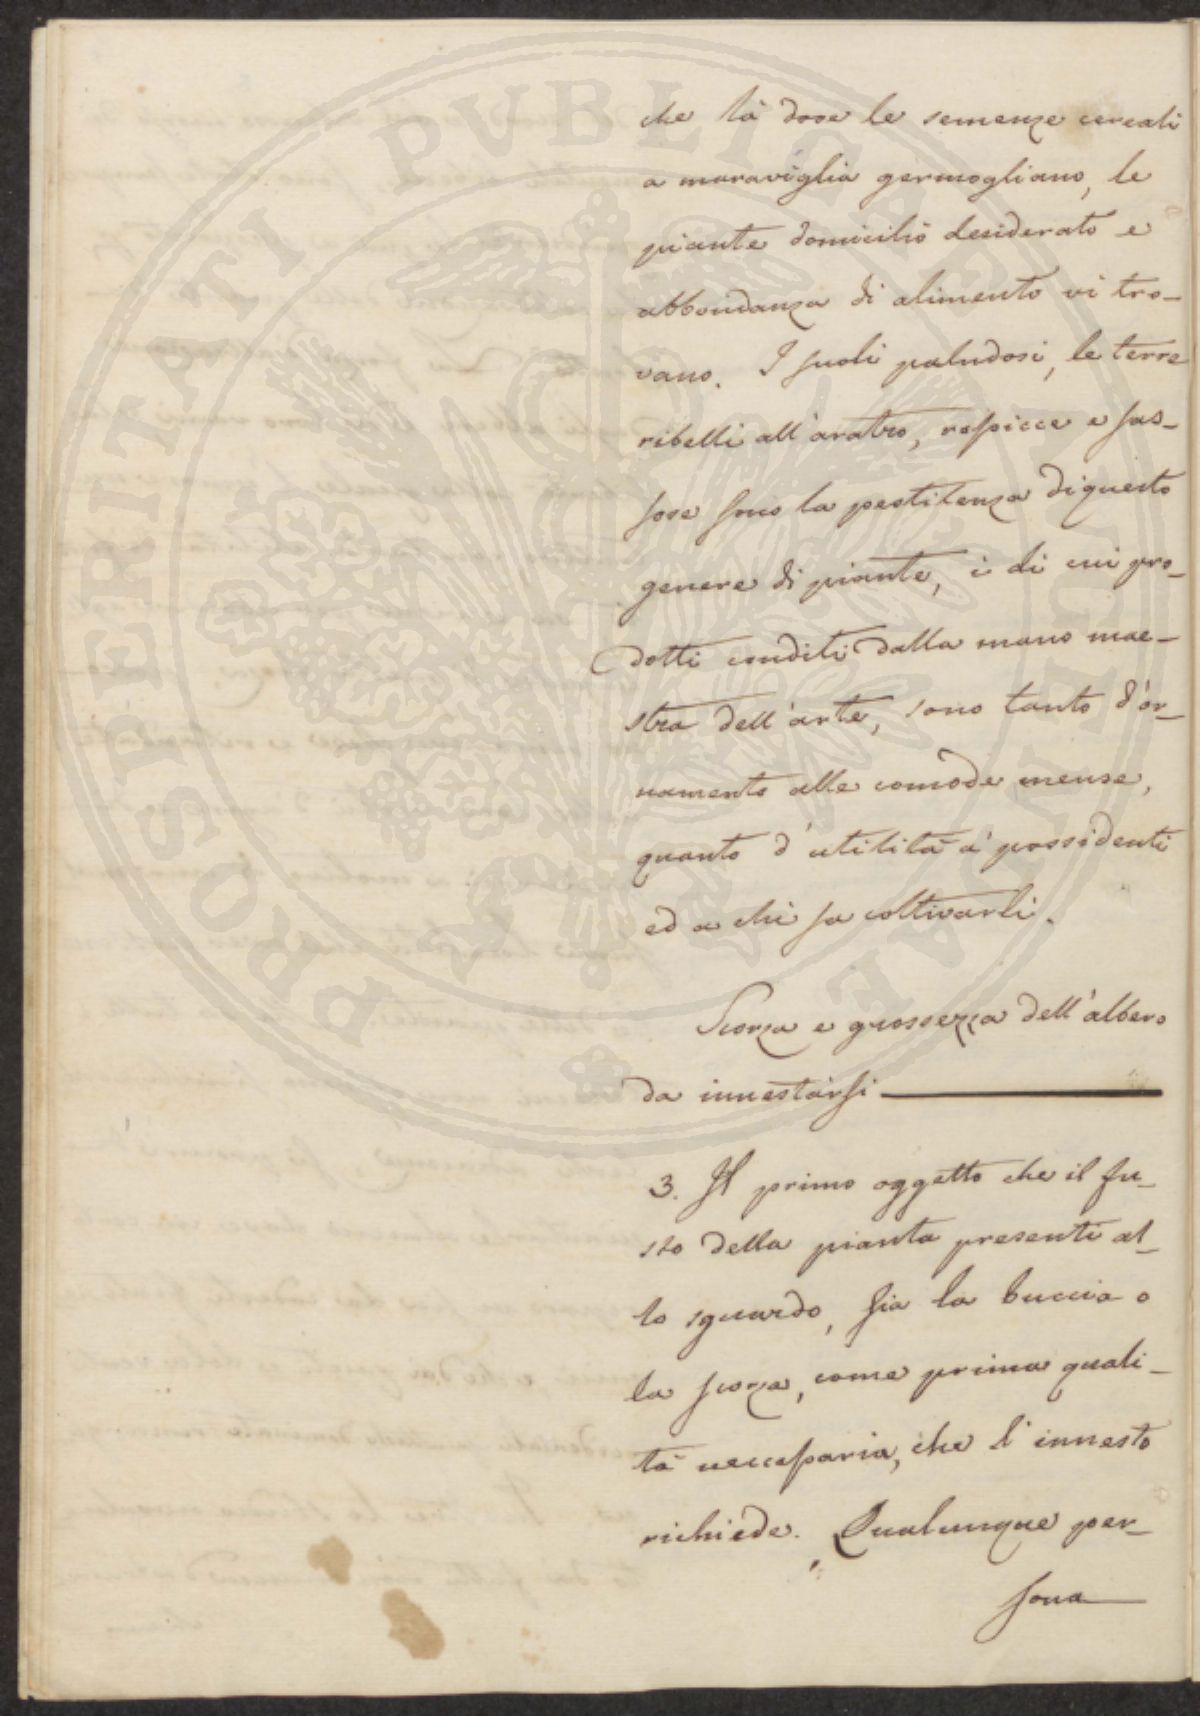 che là dove le semenze cereali
a maraviglia germogliano, le
piante domicilio desiderato e
abbondanza di alimento vi tro-
vano. I suoli paludosi, le terre
ribelli all'aratro, respicce e sas-
sose sono la pestilenza di questo
genere di piante, i di cui pro-
dotti conditi dalla mano mae-
stra dell'arte, sono tanto d'or-
namento alle comode mense,
quanto d'utilità a' possidenti
ed a chi sa coltivarli.
Scorza e grossezza dell'albero
da innestarsi
3. Il primo oggetto che il fu-
sto della pianta presenti al-
lo sguardo, sia la buccia o
la scorza, come prima quali-
tà neccessaria, che l'innesto
richiede. Qualunque per-
sona
PROSPERITATI PUBLICAE AUGENDAE